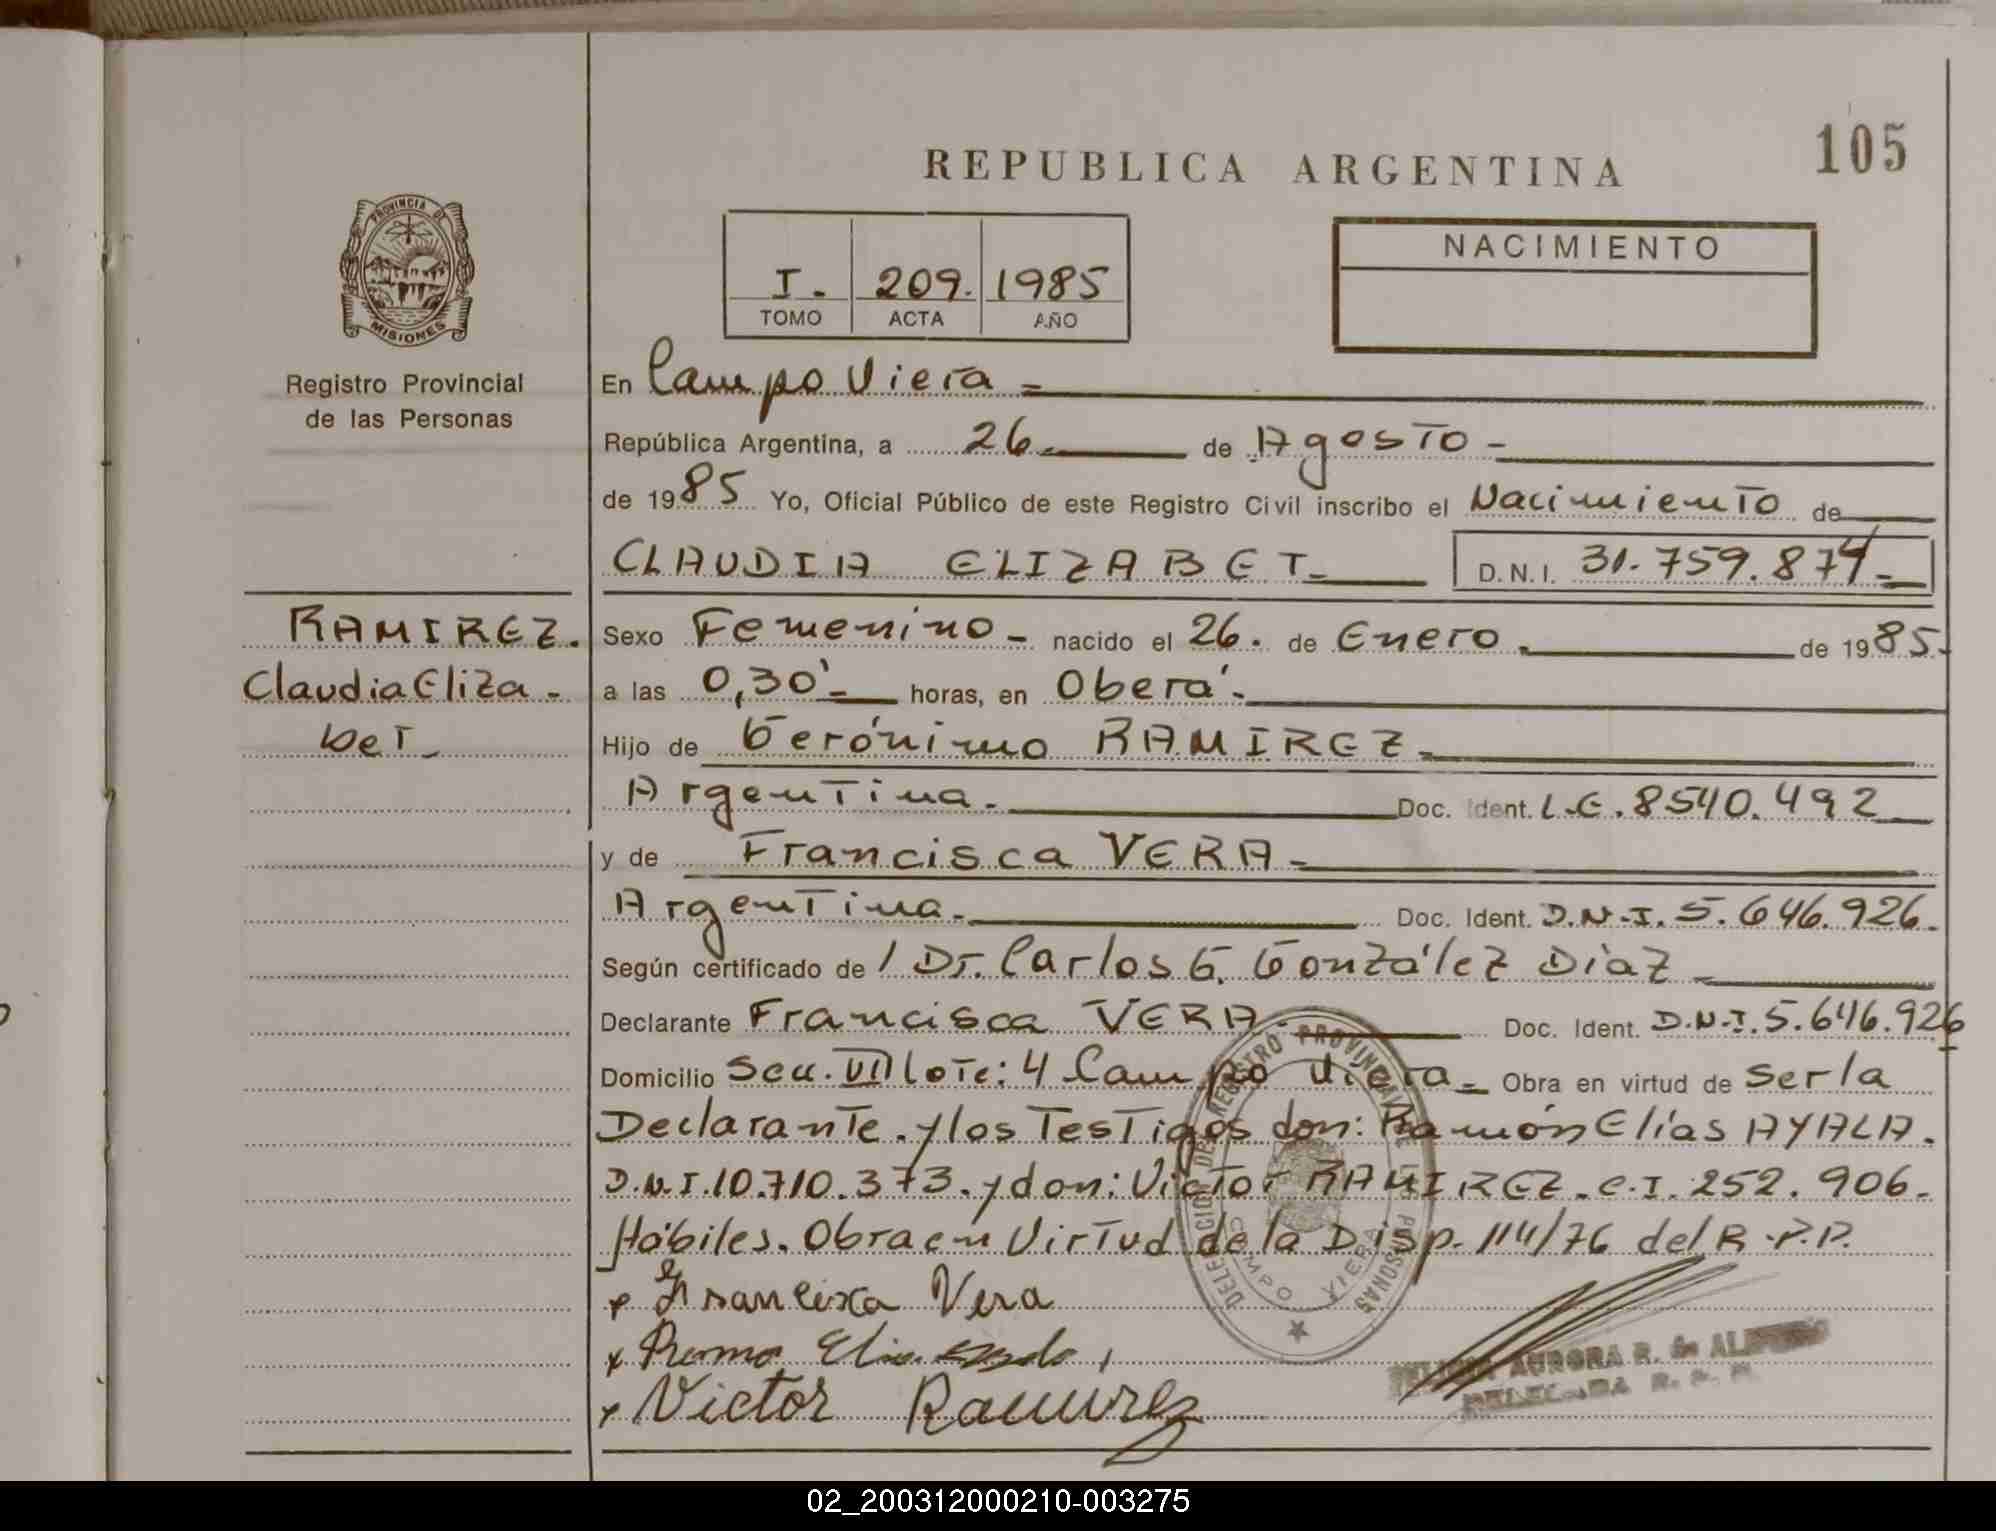 105
REPUBLICA ARGENTINA
PROVINCIA DE
MISIONES
Registro Provincial
de las Personas
I. 209. 1985
TOMO ACTA AÑO
NACIMIENTO
En Campo Viera =
República Argentina, a 26. de Agosto -
de 1985 Yo, Oficial Público de este Registro Civil inscribo el Nacimiento de
CLAUDIA ELIZABET- D.N.I. 31.759.874-
RAMIREZ.
Claudia Eliza-
bet-
Sexo Femenino- nacido el 26. de Enero. de 1985.
a las 0,30'- horas, en Oberá.
Hijo de Gerónimo RAMIREZ-
Argentina. Doc. Ident. L.E. 8540.492
y de Francisca VERA-
Argentina. Doc. Ident. D.N.I. 5.646.926.
Según certificado de / Dr. Carlos G. González Díaz
Declarante Francisca VERA- Doc. Ident. D.N.I. 5.646.926
Domicilio Secc. VII lote: 4 Campo Viera- Obra en virtud de ser la
Declarante. y los Testigos don: Ramón Elías AYALA.
D.N.I. 10.710.373. y don: Victor RAMIREZ. C.I. 252.906.
Hábiles. Obra en Virtud de la Disp. 114/76 del R.P.P.
x Francisca Vera
x Victor Ramirez
DELEGACION DEL REGISTRO PROVINCIAL DE LAS PERSONAS
CAMPO VIERA
AURORA R. de
02_200312000210-003275